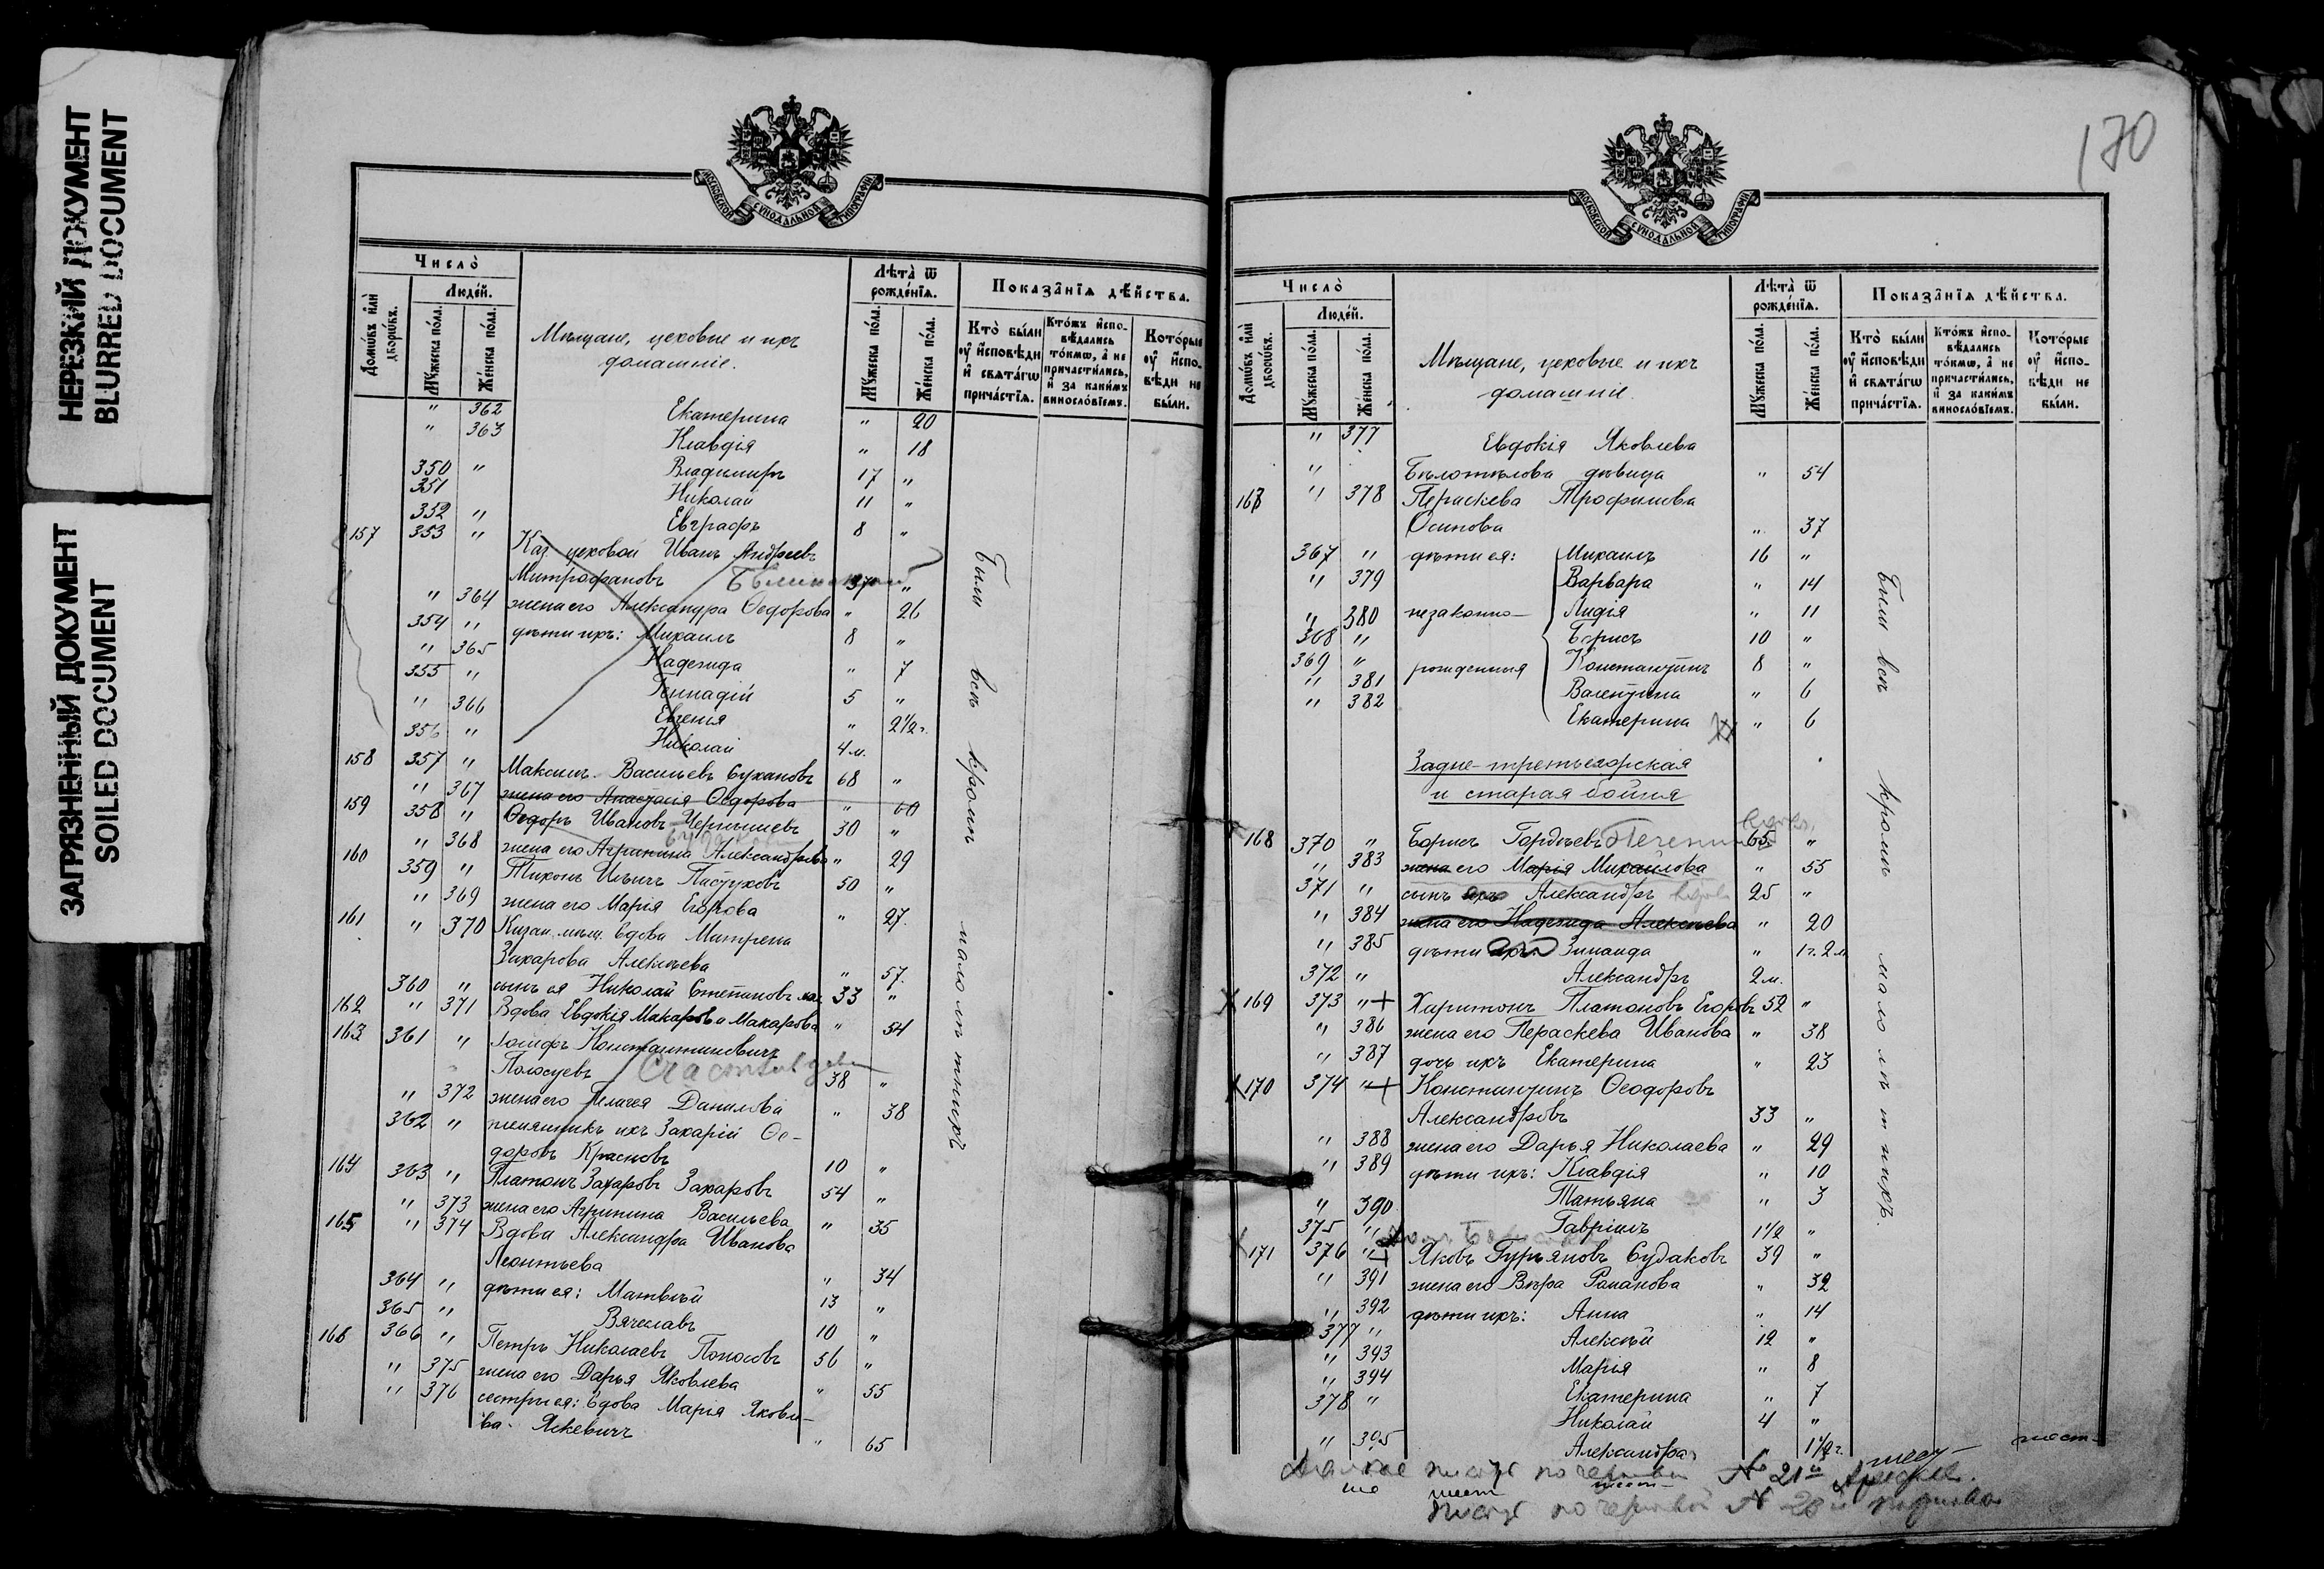 НЕРЕЗКИЙ ДОКУМЕНТ
BLURRED DOCUMENT
ЗАГРЯЗНЕННЫЙ ДОКУМЕНТ
SOILED DOCUMENT
МОСКОВСКОЙ СУНОДАЛЬНОЙ ТИПОГРАФІИ
Число̀
Людéй.
Домѡвъ и҆лѝ дворѡвъ.
Мꙋ́жеска по́ла.
Же́нска по́ла.
Мѣщане, цеховые и ихъ
домашніе.
Лѣта̀ ѿ рожде́нїѧ.
Мꙋ́жеска по́ла.
Же́нска по́ла.
Показа̑нїѧ дѣ́йства.
Кто̀ бы́ли ᲂу҆ и҆сповѣди и҆ свѧта́гѡ прича́стїѧ.
Кто́жъ и҆спо-вѣдались то́кмѡ, а҆ не причасти́лись, и҆ за каки́мъ винословїемъ.
Кото́рые ᲂу҆ и҆спо-вѣди не бы́ли.
" 362 Екатерина " 20
" 363 Клавдія " 18
350 " Владимиръ 17 "
351 Николай 11 "
352 " Евграфъ 8 "
157 353 " Каз. цеховой Иванъ Андреевъ
Митрофановъ 37 "
" 364 жена его Александра Ѳедорова " 26
354 " дѣти ихъ: Михаилъ 8 "
" 365 Надежда " 7
355 " Геннадій 5 "
" 366 Евгенія " 2 1/2 г.
356 " Николай 4 м.
158 357 " Максимъ Васильевъ Сухановъ 68 "
" 367 жена его Анастасія Ѳедорова " 60
159 358 " Ѳедоръ Ивановъ Чернышевъ 30 "
" 368 жена его Агрипина Александрова " 29
160 359 " Тихонъ Ильичъ Пастуховъ 50 "
" 369 жена его Марія Егорова " 27.
161 " 370 Казан. мѣщ. вдова Матрена
Захарова Алексѣева " 57.
360 " сынъ ея Николай Степановъ 33 "
162 " 371 Вдова Евдокія Макарова Макарова " 54
163 361 " Іосифъ Константиновичъ
38 "
" 372 жена его Пелагея Данилова " 38
362 " племянникъ ихъ Захарій Ѳе-
доровъ Красновъ 10 "
164 363 " Платонъ Захаровъ Захаровъ 54 "
" 373 жена его Агрипина Васильева " 35
165 " 374 Вдова Александра Иванова
Леонтьева " 34
364 " дѣти ея: Матвѣй 13 "
365 " Вячеславъ 10 "
166 366 " Петръ Николаевъ Поносовъ 56 "
" 375 жена его Дарья Яковлева " 55
" 376 сестра ея: вдова Марія Яковле-
ва Яскевичъ " 65
Были всѣ кромѣ малолѣтнихъ
170
МОСКОВСКОЙ СУНОДАЛЬНОЙ ТИПОГРАФІИ
Число̀
Людéй.
Домѡвъ и҆лѝ дворѡвъ.
Мꙋ́жеска по́ла.
Же́нска по́ла.
Мѣщане, цеховые и ихъ
домашніе.
Лѣта̀ ѿ рожде́нїѧ.
Мꙋ́жеска по́ла.
Же́нска по́ла.
Показа̑нїѧ дѣ́йства.
Кто̀ бы́ли ᲂу҆ и҆сповѣди и҆ свѧта́гѡ прича́стїѧ.
Кто́жъ и҆спо-вѣдались то́кмѡ, а҆ не причасти́лись, и҆ за каки́мъ винословїемъ.
Кото́рые ᲂу҆ и҆спо-вѣди не бы́ли.
" 377 Евдокія Яковлева
" Бѣлотѣлова дѣвица " 54
167 " 378 Пераскева Трофимова
Осипова " 37
367 " дѣти ея: Михаилъ 16 "
" 379 Варвара " 14
" 380 незаконно- Лидія " 11
368 " Борисъ 10 "
369 " рожденныя Константинъ 8 "
" 381 Валентина " 6
" 382 Екатерина " 6
Задне-третьегорская
и старая бойня
168 370 " Борисъ Гордѣевъ 65 "
" 383 жена его Марія Михайлова " 55
371 " сынъ его Александръ 25 "
" 384 жена его Надежда Алексѣева " 20
" 385 дѣти Зинаида " 1 г. 2 м
372 " Александръ 2 м.
169 373 " Харитонъ Платоновъ Егоровъ 52 "
" 386 жена его Пераскева Иванова " 38
" 387 дочь ихъ Екатерина " 23
170 374 " Константинъ Ѳеодоровъ
Александровъ 33 "
" 388 жена его Дарья Николаева " 29
" 389 дѣти ихъ: Клавдія " 10
" 390 Татьяна " 3
375 " Гавріилъ 1 1/2 "
171 376 " Яковъ Гурьяновъ Судаковъ 39 "
" 391 жена его Вѣра Романова " 32
" 392 дѣти ихъ: Анна " 14
377 " Алексѣй 12 "
" 393 Марія " 8
" 394 Екатерина " 7
378 " Николай 4 "
" 395 Александра 1 1/2 г.
Были всѣ кромѣ малолѣтнихъ.